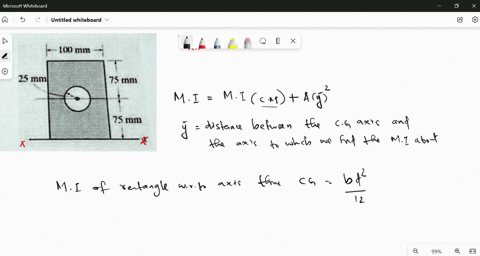 Microsoft Whiteboard
Untitled whiteboard
100 mm
25 mm
75 mm
75 mm
X X
M.I = M.I (C.G) + A(ȳ)²
ȳ = distance between the C.G axis and
the axis to which we find the M.I about
M.I of rectangle w.r.to axis thru CG = bd²/12
99%